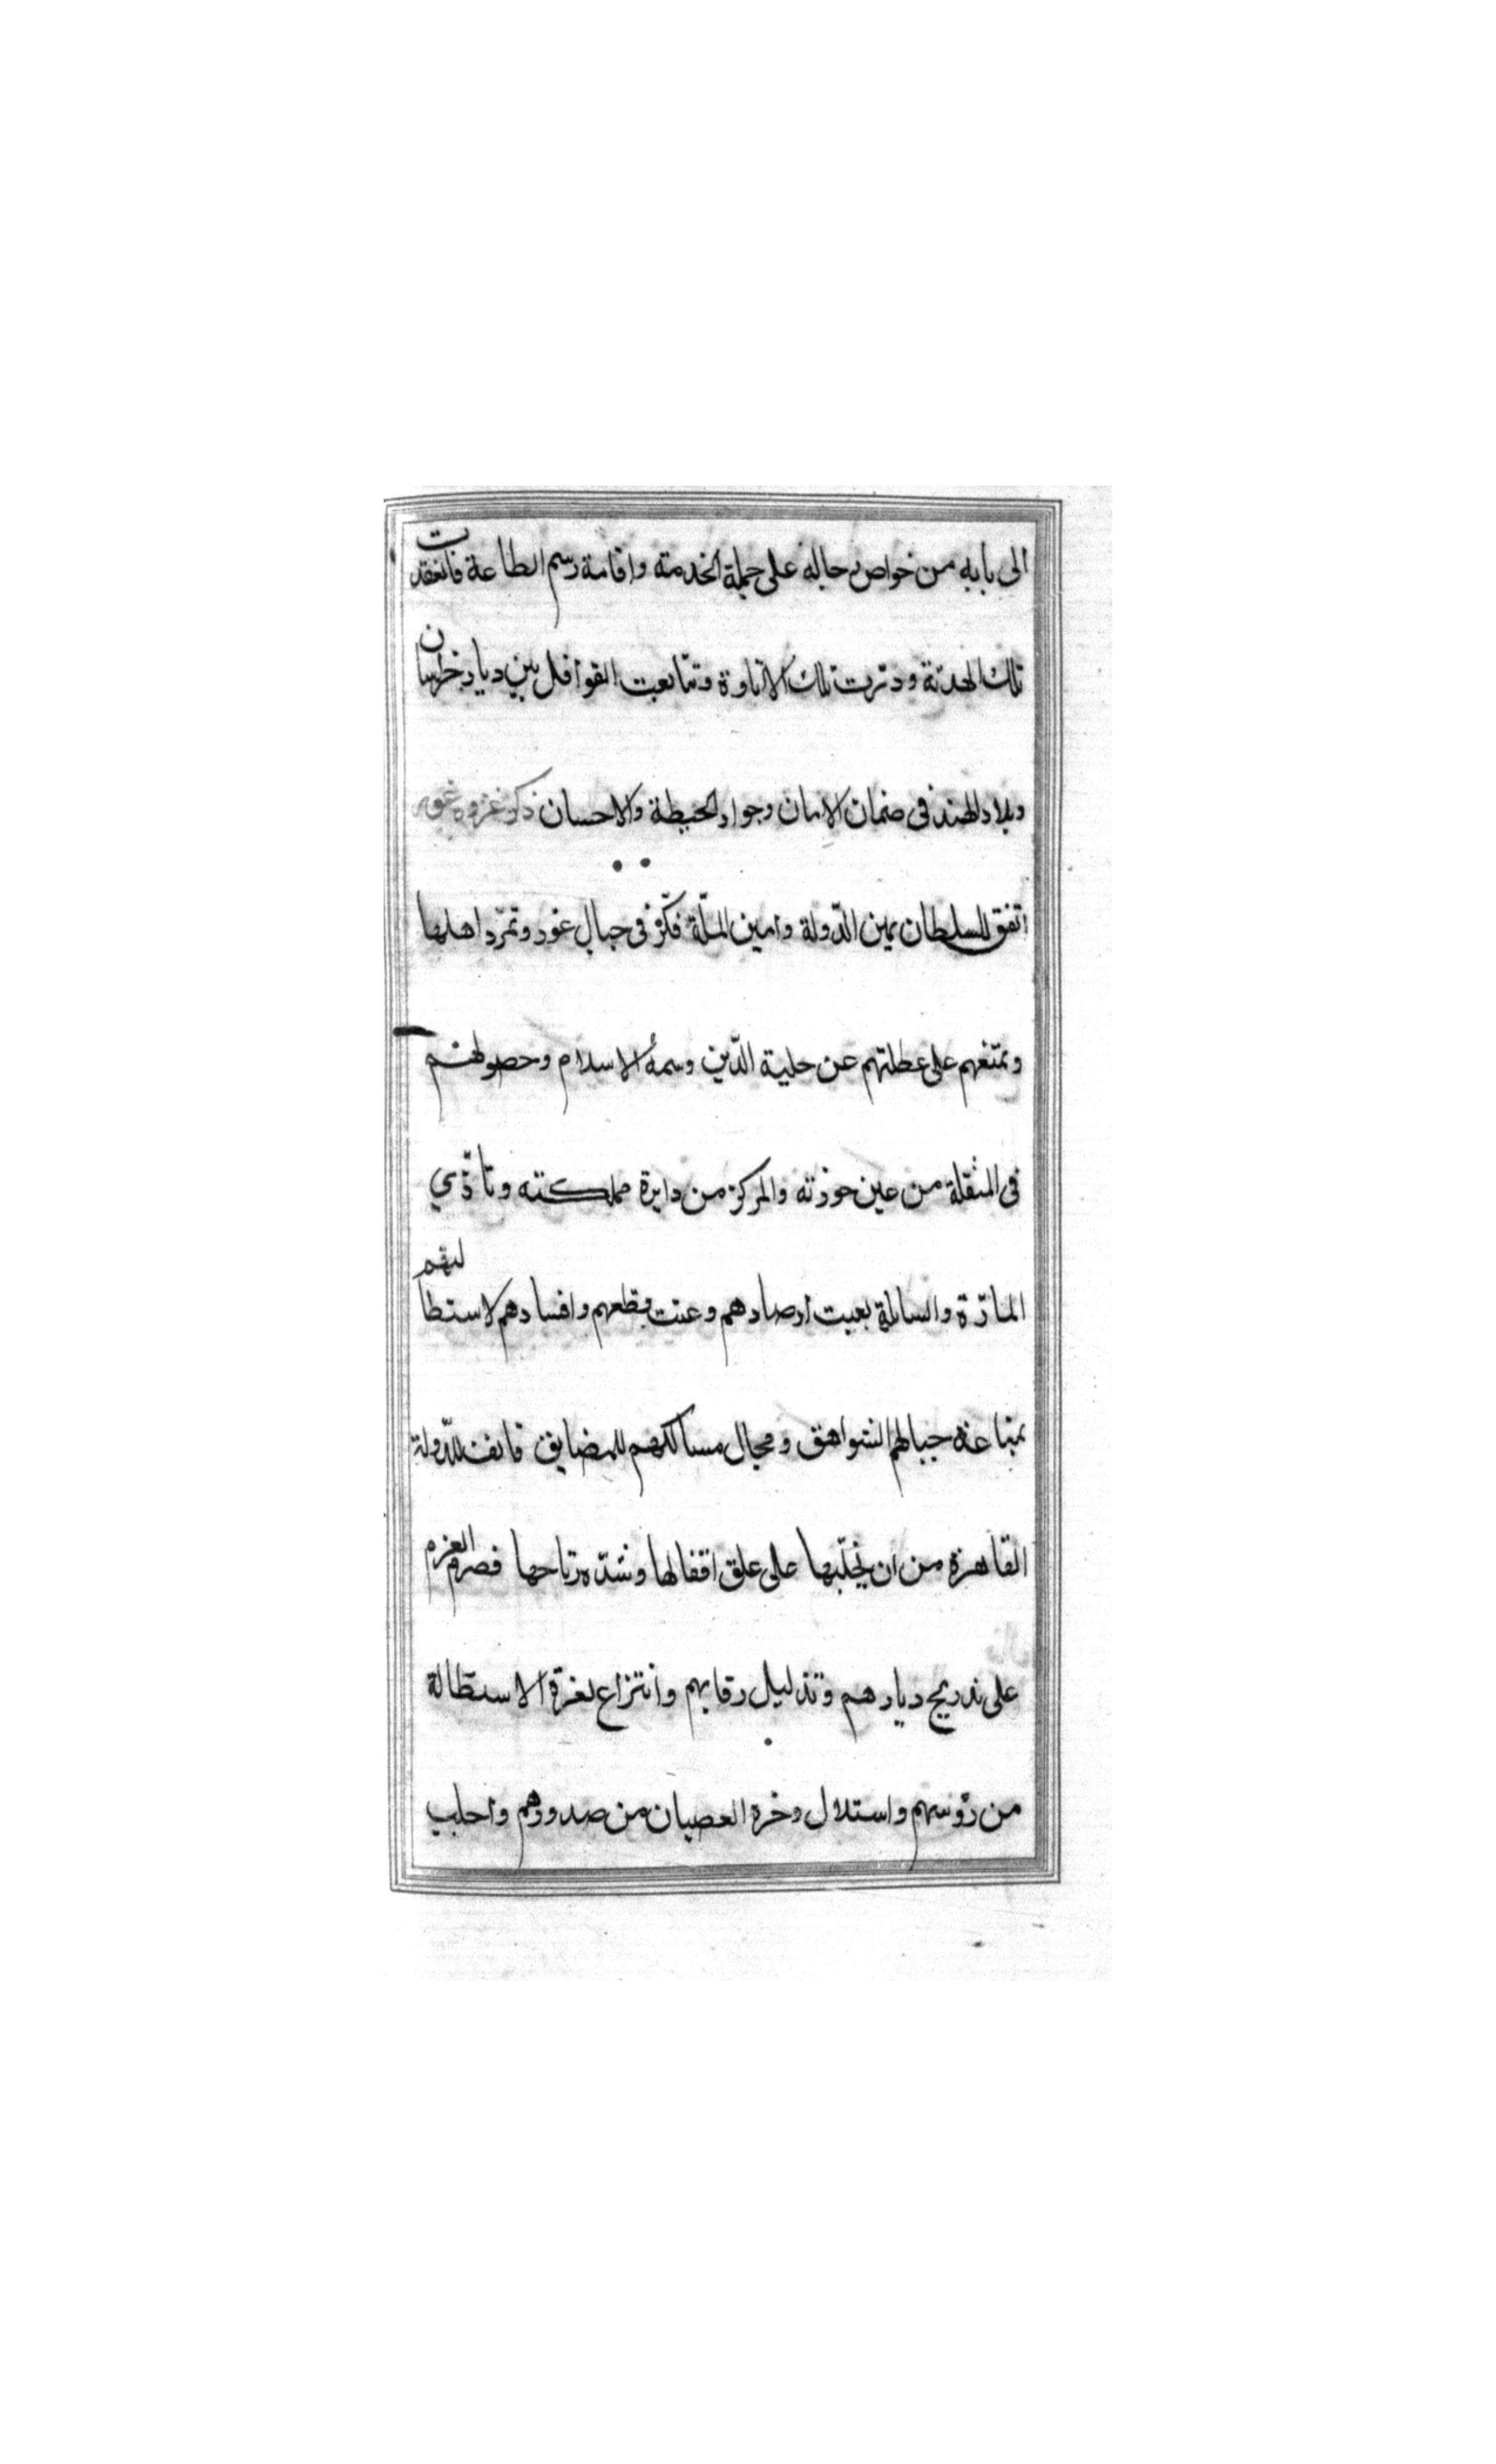 الى بابه من خواص رجاله على جملة الخدمته واقامة رسم الطاعة فانعقدت
تلك الهدنة ودترت تلك الاتاوة وتتابعت القوافل بين ديار خراسان
وبلاد الهند فى ضمان الامان وجوار الحيطة والاحسان ذكر غزوه غور
اتفق للسلطان يمين الدّولة وامين الملّة فكّر فى جبال غور وتمرّد اهلها
وتمتعهم على عطلتهم عن حلية الدّين وسمة الاسلام وحصولهم
فى المثقلة من عين حوزته والمركز من دايرة مملكته وتاذّي
المارّة والسابلة بعيت ارصادهم وعنت قطعهم وافسادهم لاستطالتهم
بمناعة جبالهم الشواهق ومجال مسالكهم للمضايق فانف للدّولة
القاهرة من ان يخلّيها على علق اقفالها وشدّه رتاجها فصرم العزم
على تدريج ديارهم وتذليل رقابهم وانتزاع لغرّة الاستطالة
من رؤسهم واستلال وخرة العصيان من صدورهم واجلب